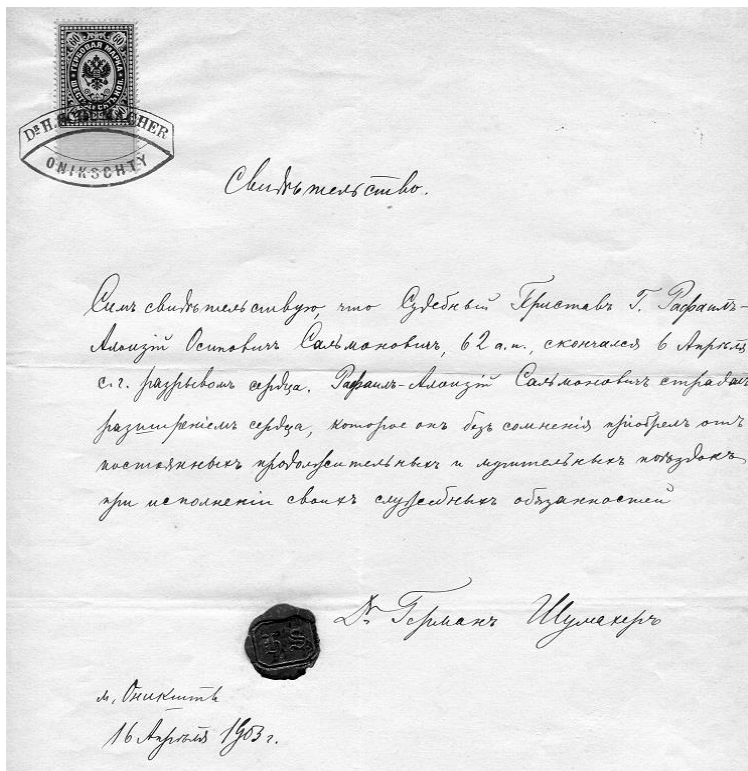 60 ГЕРБОВАЯ МАРКА 60
DR H. SCHUMACHER
ONIKSCHTY
Свидѣтельство.
Симъ свидѣтельствую, что Судебный Приставъ Г. Рафаилъ-
Алоизій Осиповичъ Сальмоновичъ, 62 л., скончался 6 Апрѣля
с. г. разрывомъ сердца. Рафаилъ-Алоизій Сальмоновичъ страдалъ
разширеніемъ сердца, которое онъ безъ сомненія пріобрелъ отъ
постоянныхъ продолжительныхъ и мучительныхъ поѣздокъ
при исполненіи своихъ служебныхъ обязанностей
Dr Германъ Шумахеръ
м. Оникшты
16 Апрѣля 1903 г.